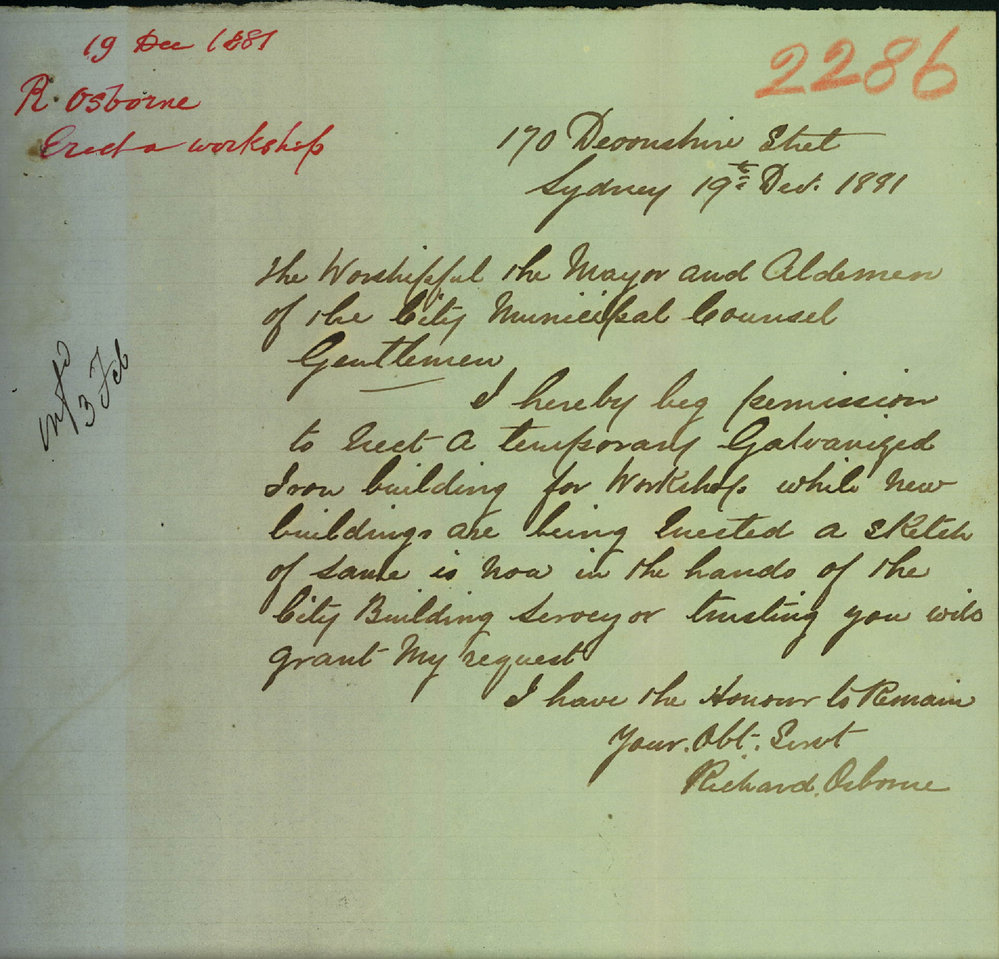 19 Dec 1881
R. Osborne
Erect a workshop
2286
170 Devonshire Stret
Sydney 19th Dec. 1881
The Worshipful the Mayor and Aldemen
of the City Municipal Counsel
Gentlemen
I hereby beg permission
to Erect a temporary Galvanized
Iron building for Workshop while New
buildings are being Erected a sketch
of same is now in the hands of the
City Building Serveyor trusting you will
grant My request
I have the Honour to Remain
Your. Obt. Servt
Richard. Osborne
3 Feb